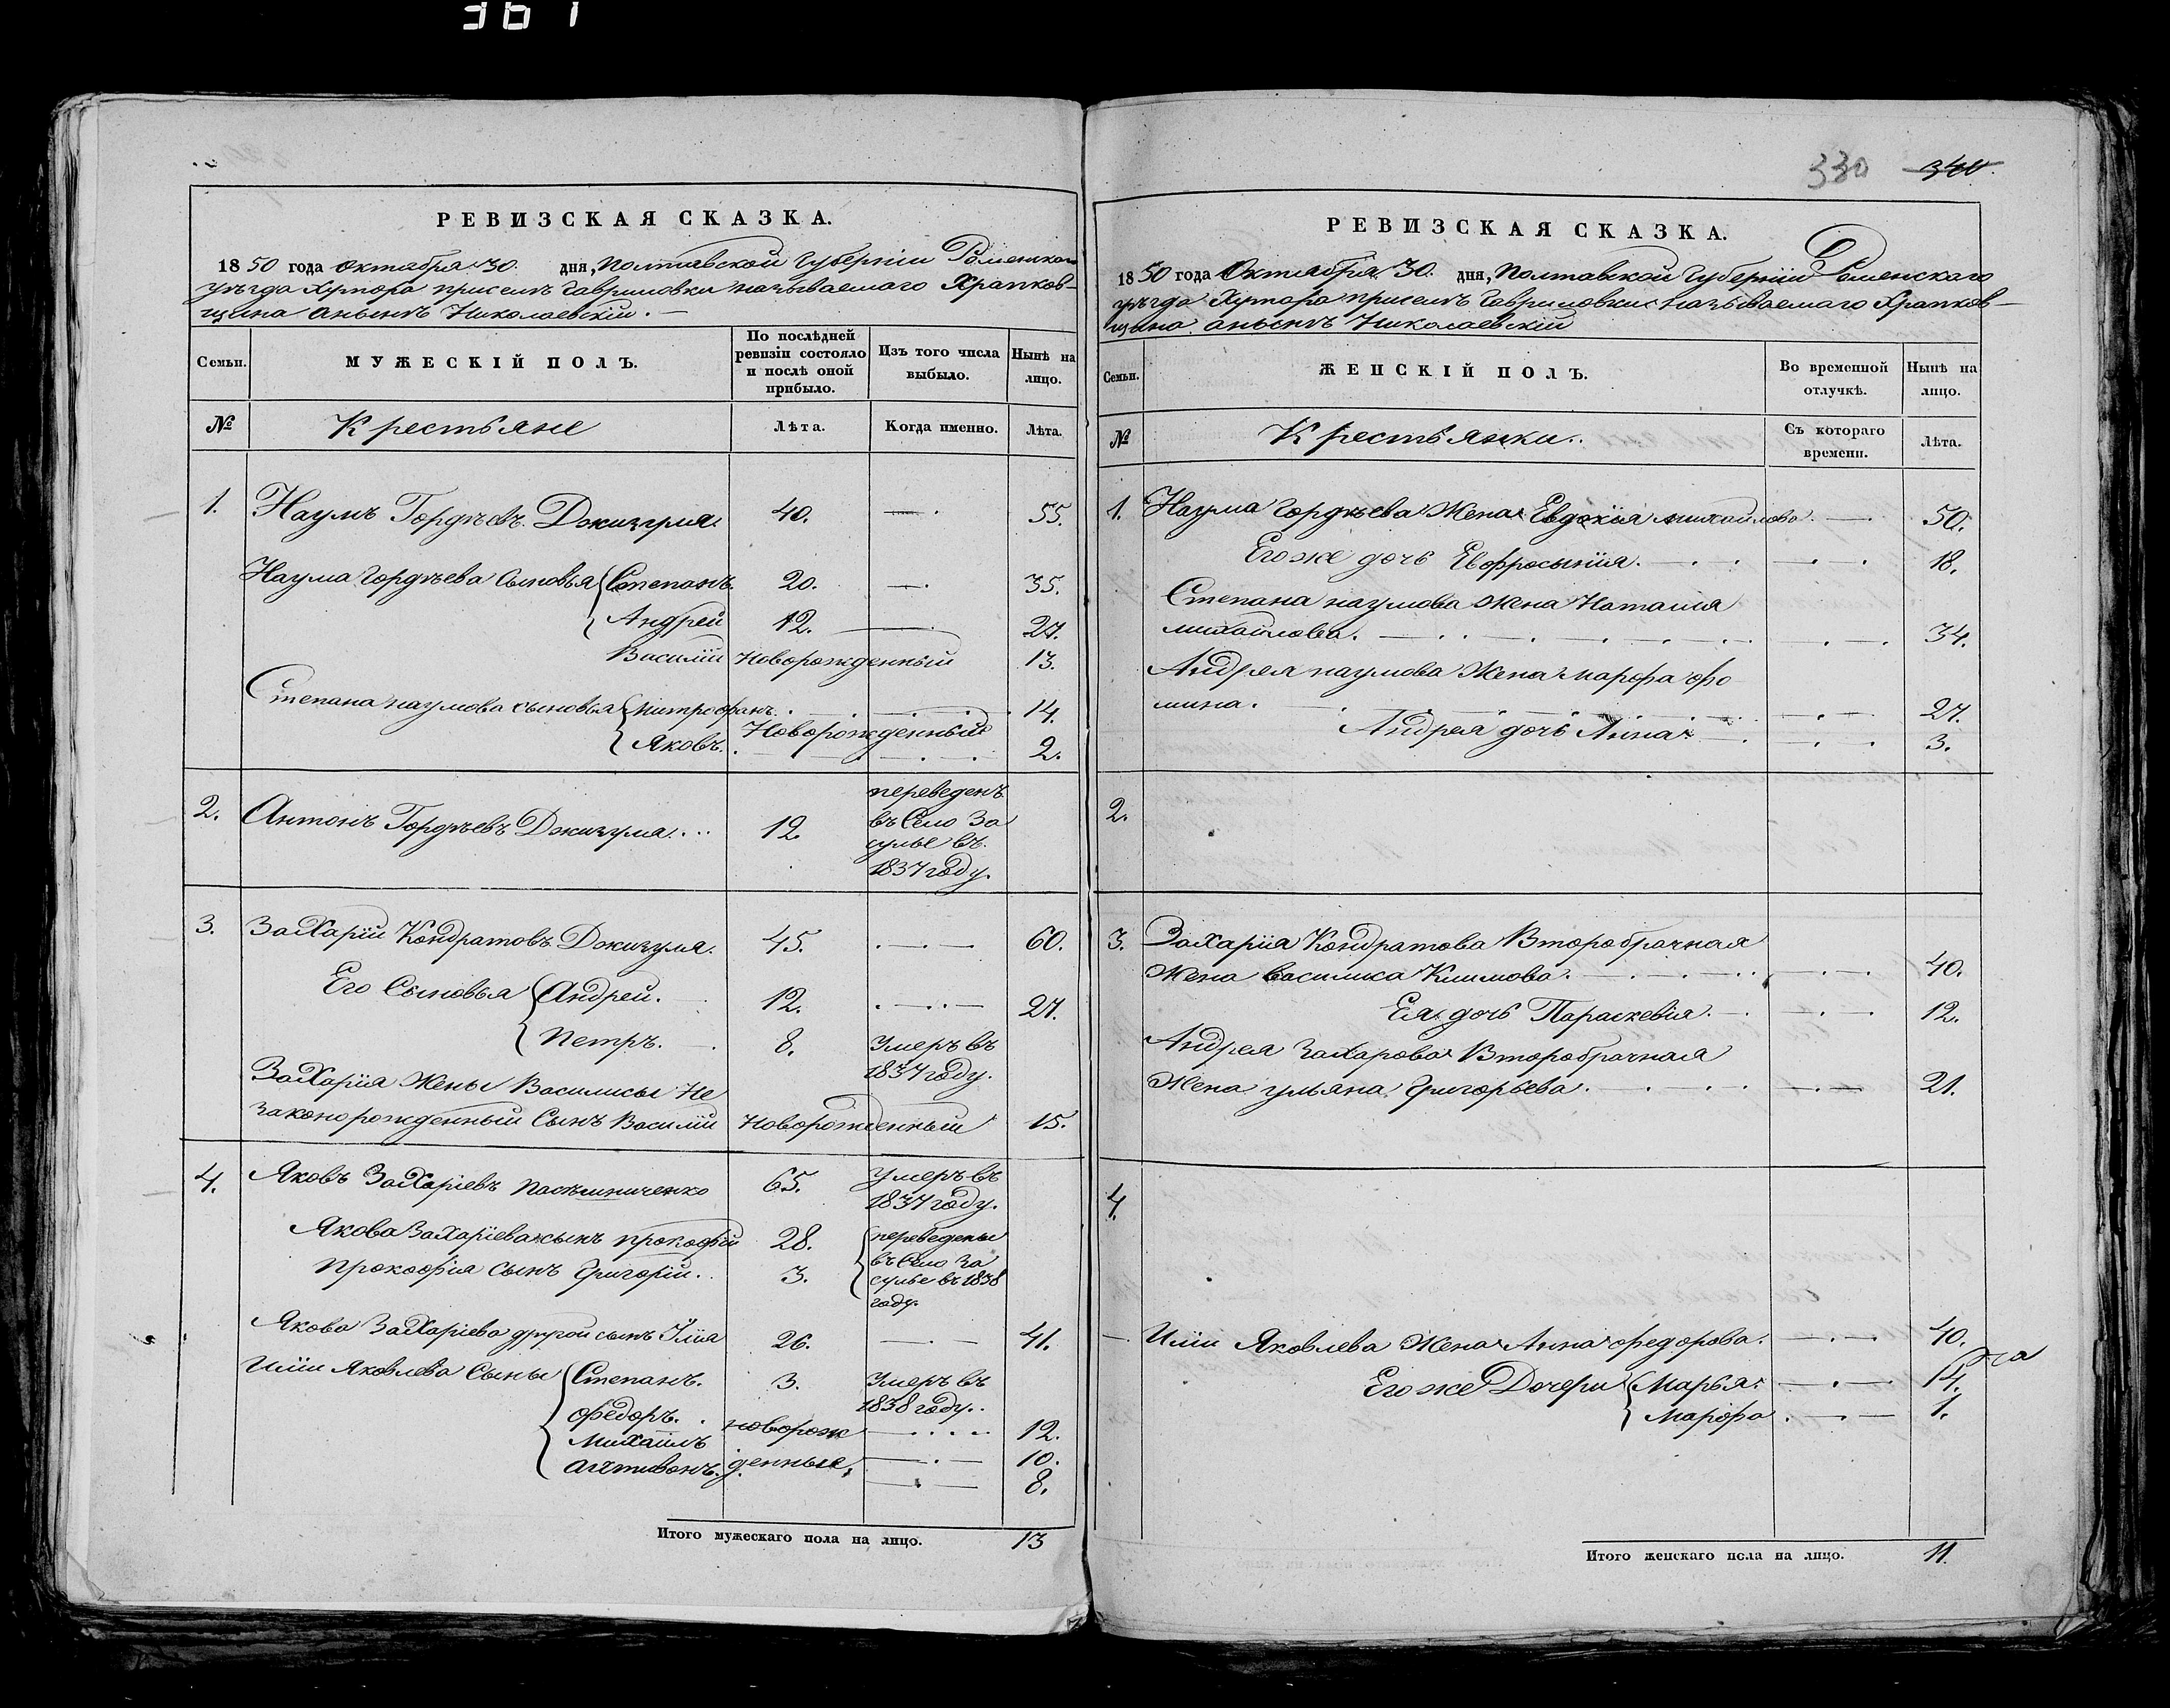 361
РЕВИЗСКАЯ СКАЗКА.
1850 года Октября 30. дня, Полтавской Губерніи Роменскаго
уѣзда Хутора присемъ Гавриловки называемаго Храпков-
щина аньинѣ Николаевскій.
Семьи. МУЖЕСКІЙ ПОЛЪ. По послѣдней ревизіи состояло и послѣ оной прибыло. Изъ того числа выбыло. Нынѣ на лицо.
№ Крестьяне Лѣта. Когда именно. Лѣта.
1. Наумъ Гордѣевъ Джигуля 40. 55.
Наума Гордѣева Сыновья Степанъ. 20. 35.
Андрей 12. 27.
Василій Новорожденный 13.
Степана Наумова сыновья Митрофанъ. 14.
Новорожденные
Яковъ. 2.
2. Антонъ Гордѣевъ Джигуля 12. переведенъ
въ Село За
сулье въ
1837 году.
3. Захарій Кондратовъ Джигуля. 45. 60.
Его Сыновья Андрей. 12. 27.
Петръ. 8. Умеръ въ
1837 году.
Захарія Жены Василисы Не
законорожденный Сынъ Василій Новорожденный 15.
4. Яковъ Захаріевъ 65. Умеръ въ
1837 году.
Якова Захаріева сынъ Прокофій 28. переведены
Прокофія сынъ Григорій. 3. въ Село За
сулье въ 1838
году.
Якова Захаріева другой сынъ Илія 26. 41.
Иліи Яковлева Сыны Степанъ. 3. Умеръ въ
1838 году.
Федоръ. новорож 12.
Михаилъ денные, 10.
8.
Итого мужескаго пола на лицо. 13
330 340
РЕВИЗСКАЯ СКАЗКА.
1850 года Октября 30. дня, Полтавской Губерніи Роменскаго
уѣзда Хутора присемъ Гавриловки называемаго Храпков-
щина аньинѣ Николаевскій
Семьи. ЖЕНСКІЙ ПОЛЪ. Во временной отлучкѣ. Нынѣ на лицо.
№ Крестьянки. Съ котораго времени. Лѣта.
1. Наума Гордѣева Жена Евдокія Михайлова 50.
Его же дочь Евфросынія. 18.
Степана Наумова Жена Наталія
Михайлова. 34.
Андрея Наумова Жена Марфа Фо
мина. 27.
Андрея дочь Анна 3.
2.
3. Захарія Кондратова Второбрачная
Жена Василиса Климова. 40.
Ея дочь Параскевія. 12.
Андрея Захарова Второбрачная
Жена Ульяна Григорьева. 21.
4.
Иліи Яковлева Жена Анна Федорова. 40.
Его же Дочери Марья 14.
Марфа 1.
Итого женскаго пола на лицо. 11.